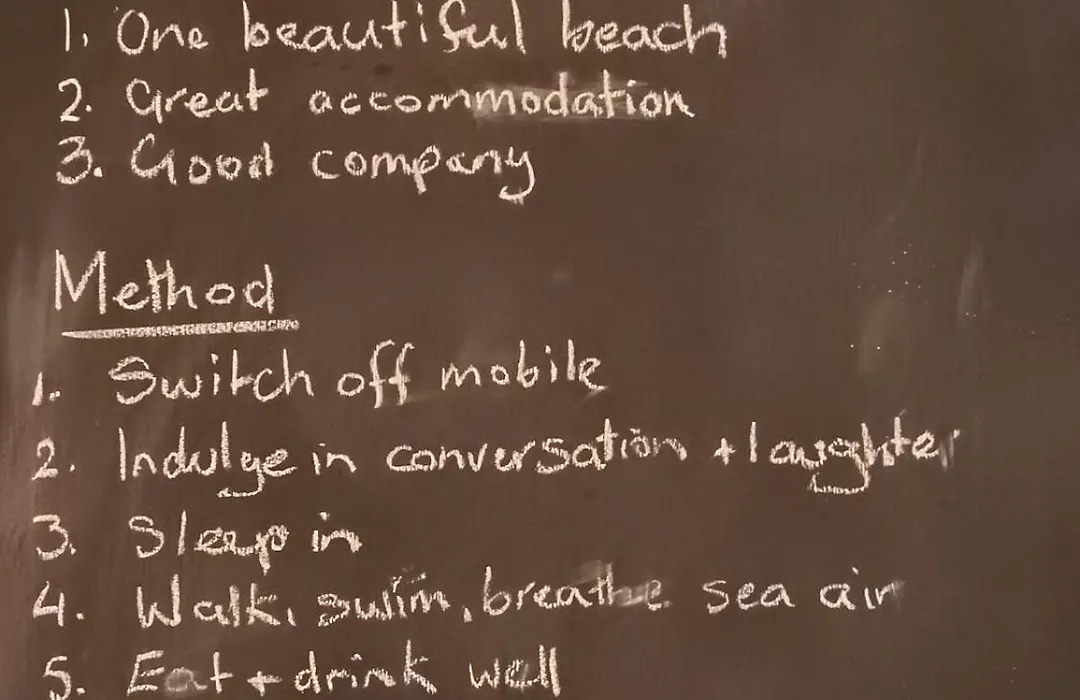 1. One beautiful beach
2. Great accommodation
3. Good company
Method
1. Switch off mobile
2. Indulge in conversation + laughter
3. Sleep in
4. Walk, swim, breathe sea air
5. Eat + drink well